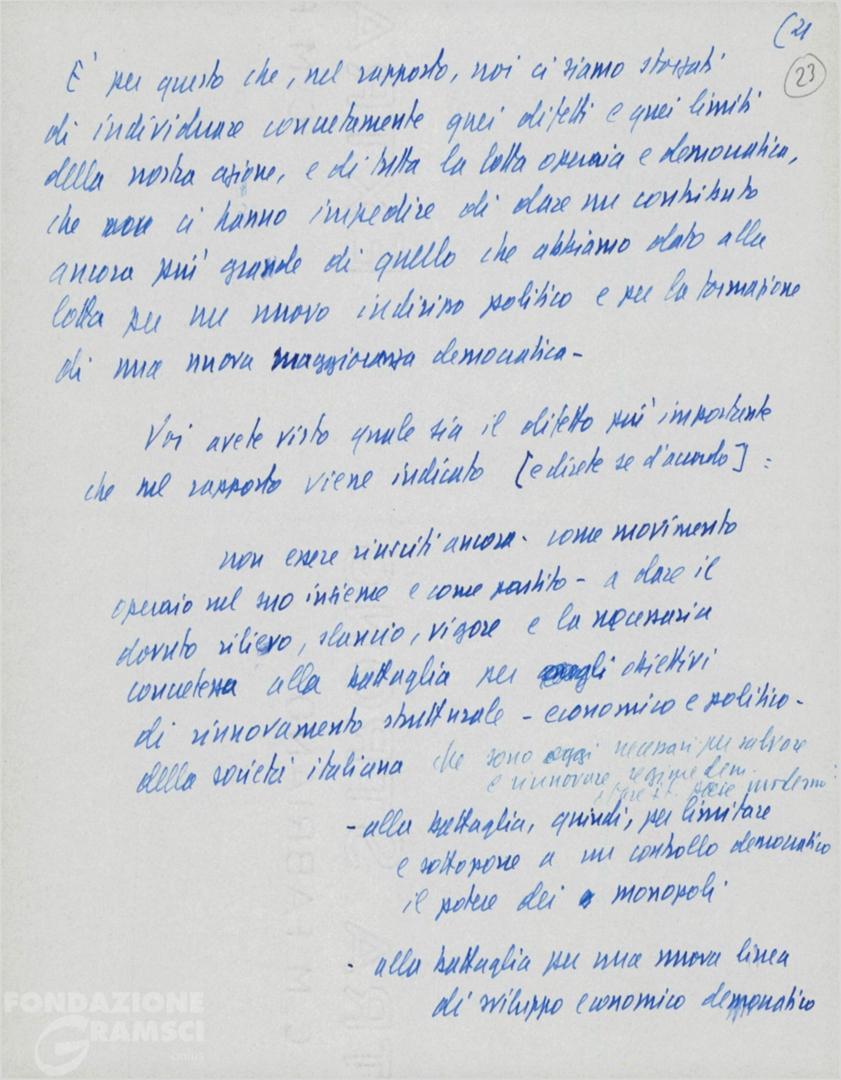 (21
23
E' per questo che, nel rapporto, noi ci siamo sforzati
di individuare concretamente quei difetti e quei limiti
della nostra azione, e di tutta la lotta operaia e democratica,
che ci hanno impedire di dare un contributo
ancora più grande di quello che abbiamo dato alla
lotta per un nuovo indirizzo politico e per la formazione
di una nuova maggioranza democratica -
Voi avete visto quale sia il difetto più importante
che nel rapporto viene indicato [e direte se d'accordo] :
non essere riusciti ancora - come movimento
operaio nel suo insieme e come partito - a dare il
dovuto rilievo, slancio, vigore e la necessaria
concretezza alla battaglia per gli obiettivi
di rinnovamento strutturale - economico e politico -
della società italiana che sono oggi necessari per salvare
e rinnovare regime dem.
moderno :
- alla battaglia, quindi, per limitare
e sottoporre a un controllo democratico
il potere dei monopoli
- alla battaglia per una nuova linea
di sviluppo economico democratico
FONDAZIONE
GRAMSCI
onlus